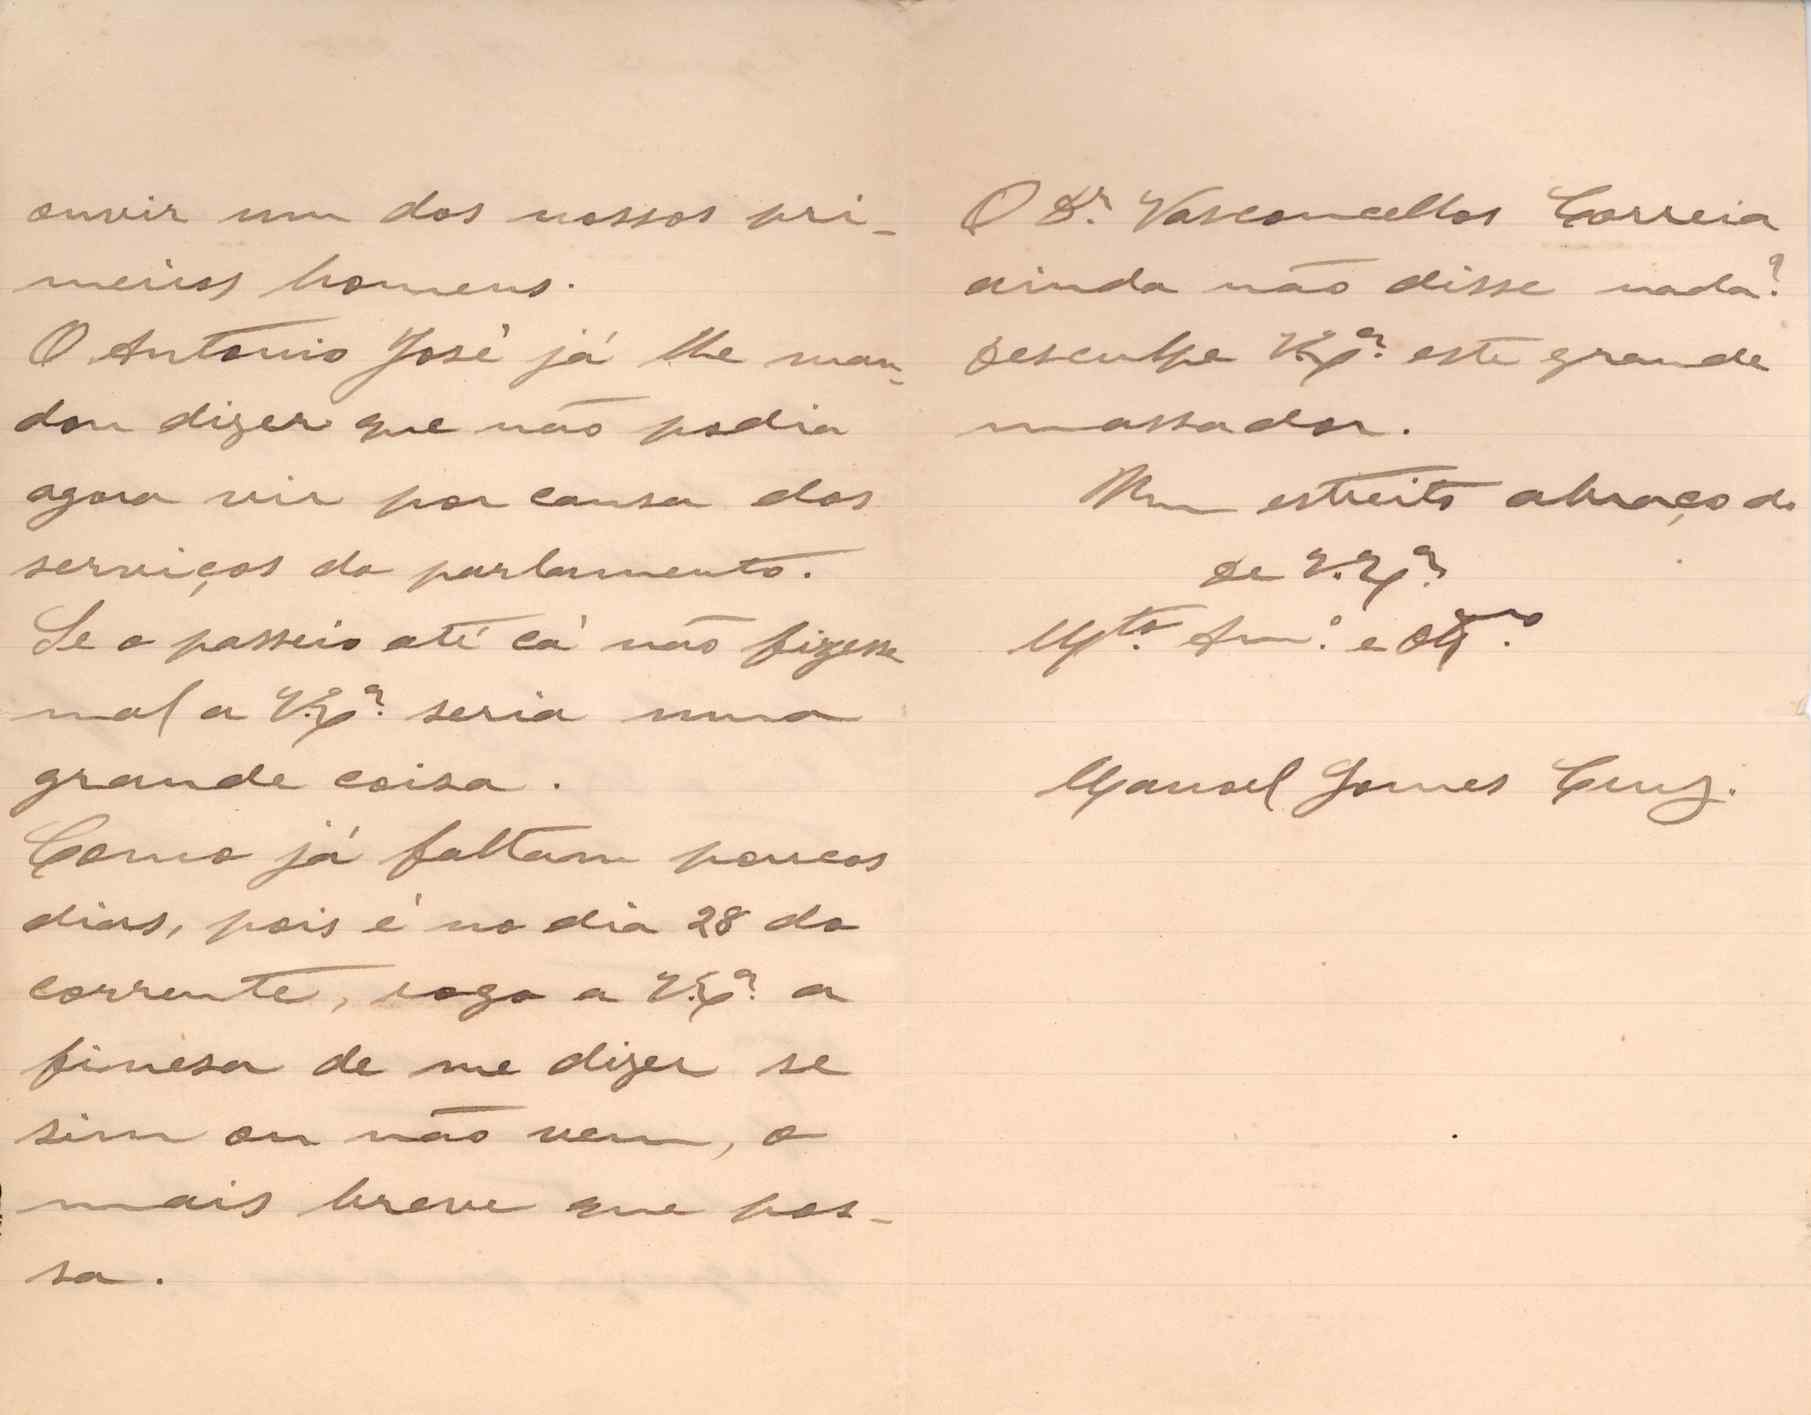 ouvir um dos nossos pri-
meiros homens.
O Antonio José já lhe man-
dou dizer que não podia
agora vir por causa dos
serviços do parlamento.
Se o passeio até cá não fizesse
mal a V. Ex.ª seria uma
grande coisa.
Como já faltam poucos
dias, pois é no dia 28 do
corrente, rogo a V. Ex.ª a
finesa de me dizer se
sim ou não vem, o
mais breve que pos-
sa.
O Dr. Vasconcellos Correia
ainda não disse nada?
Desculpe V. Ex.ª este grande
massador.
Um estreito abraço do
De V. Ex.ª
M.to Am.º e Obg.mo
Manoel Gomes Cruz.